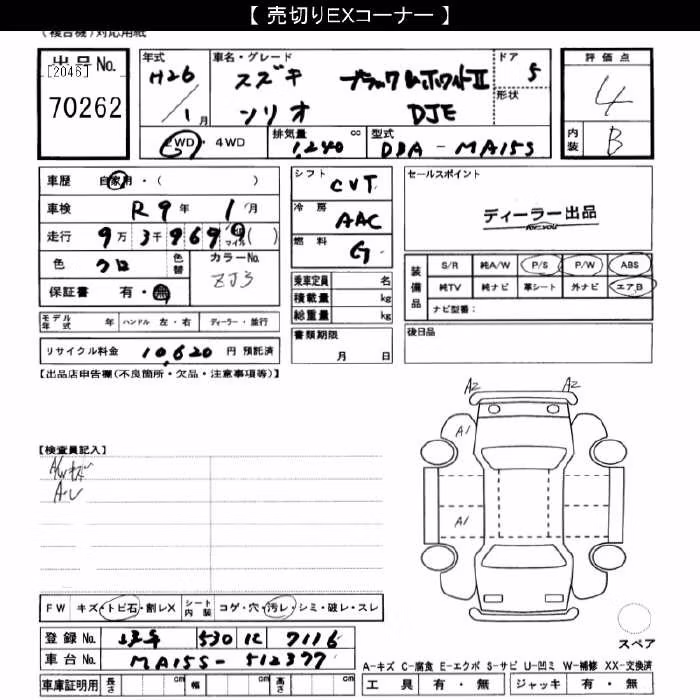 【 売切りEXコーナー 】
(複合機)対応用紙
出品No.
[2046]
70262
年式 H26 / 1月
車名・グレード スズキ ブラック&ホワイトII
ソリオ DJE
ドア 5
形状
評価点 4
内装 B
2WD・4WD
排気量 1,240 cc
型式 DBA - MA15S
車歴 自家用・( )
車検 R9年 1月
走行 9万3千969 マイル( )
色 クロ 色替
カラーNo. ZJ3
保証書 有・無
シフト CVT
冷房 AAC
燃料 G
乗車定員 名
積載量 kg
総重量 kg
セールスポイント
ディーラー出品
for you
装備品
S/R 純A/W P/S P/W ABS
純TV 純ナビ 革シート 外ナビ エアB
ナビ型番:
モデル年式 年 ハンドル 左・右 ディーラー・並行
リサイクル料金 10,620 円 預託済
書類期限 月 日
後日品
【出品店申告欄(不良箇所・欠品・注意事項等)】
【検査員記入】
A/Wキズ
A-U
A2 A2
A1
A1
FW キズ・トビ石・割レX シート内装 コゲ・穴・汚レ・シミ・破レ・スレ
登録No. 530 7116
車台No. MA15S- 512377
スペア
A-キズ C-腐食 E-エクボ S-サビ U-凹ミ W-補修 XX-交換済
車庫証明用 長さ cm 幅 cm 高さ cm
工具 有・無 ジャッキ 有・無